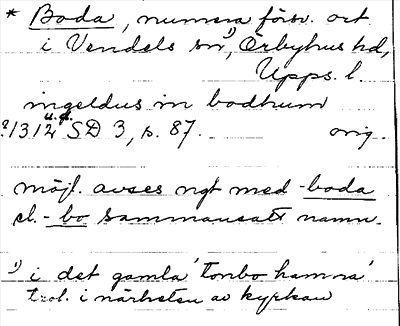 * Boda, numera försv. ort
i Vendels sn¹⁾, Örbyhus hd,
Upps. l.
ingeldus in bodhum
?1312 u.d. SD 3, s. 87. orig.
möjl. avses ngt med -boda
el. -bo sammansatt namn.
¹⁾ i det gamla 'tonbo hamna'
trol. i närheten av kyrkan